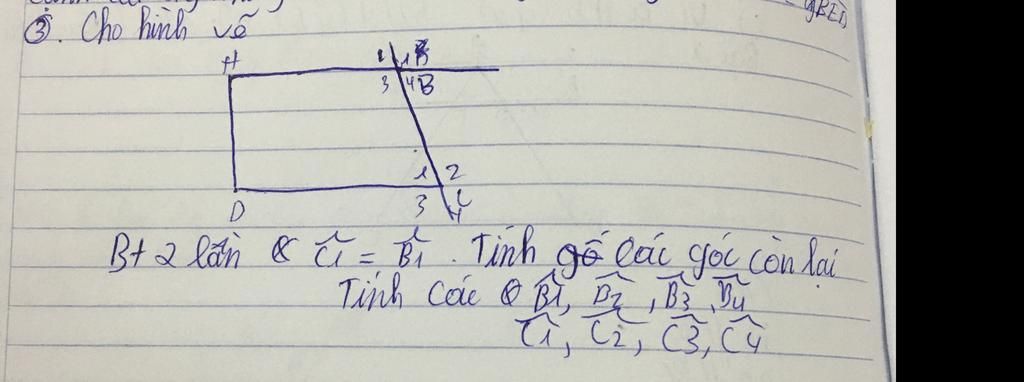 ③. Cho hình vẽ
A
1 1 B
3 4 B
1 2
D 3 4 C
Bt 2 lần Ĉ1 = B̂1. Tính các góc còn lại
Tính các B̂1, B̂2, B̂3, B̂4
Ĉ1, Ĉ2, Ĉ3, Ĉ4